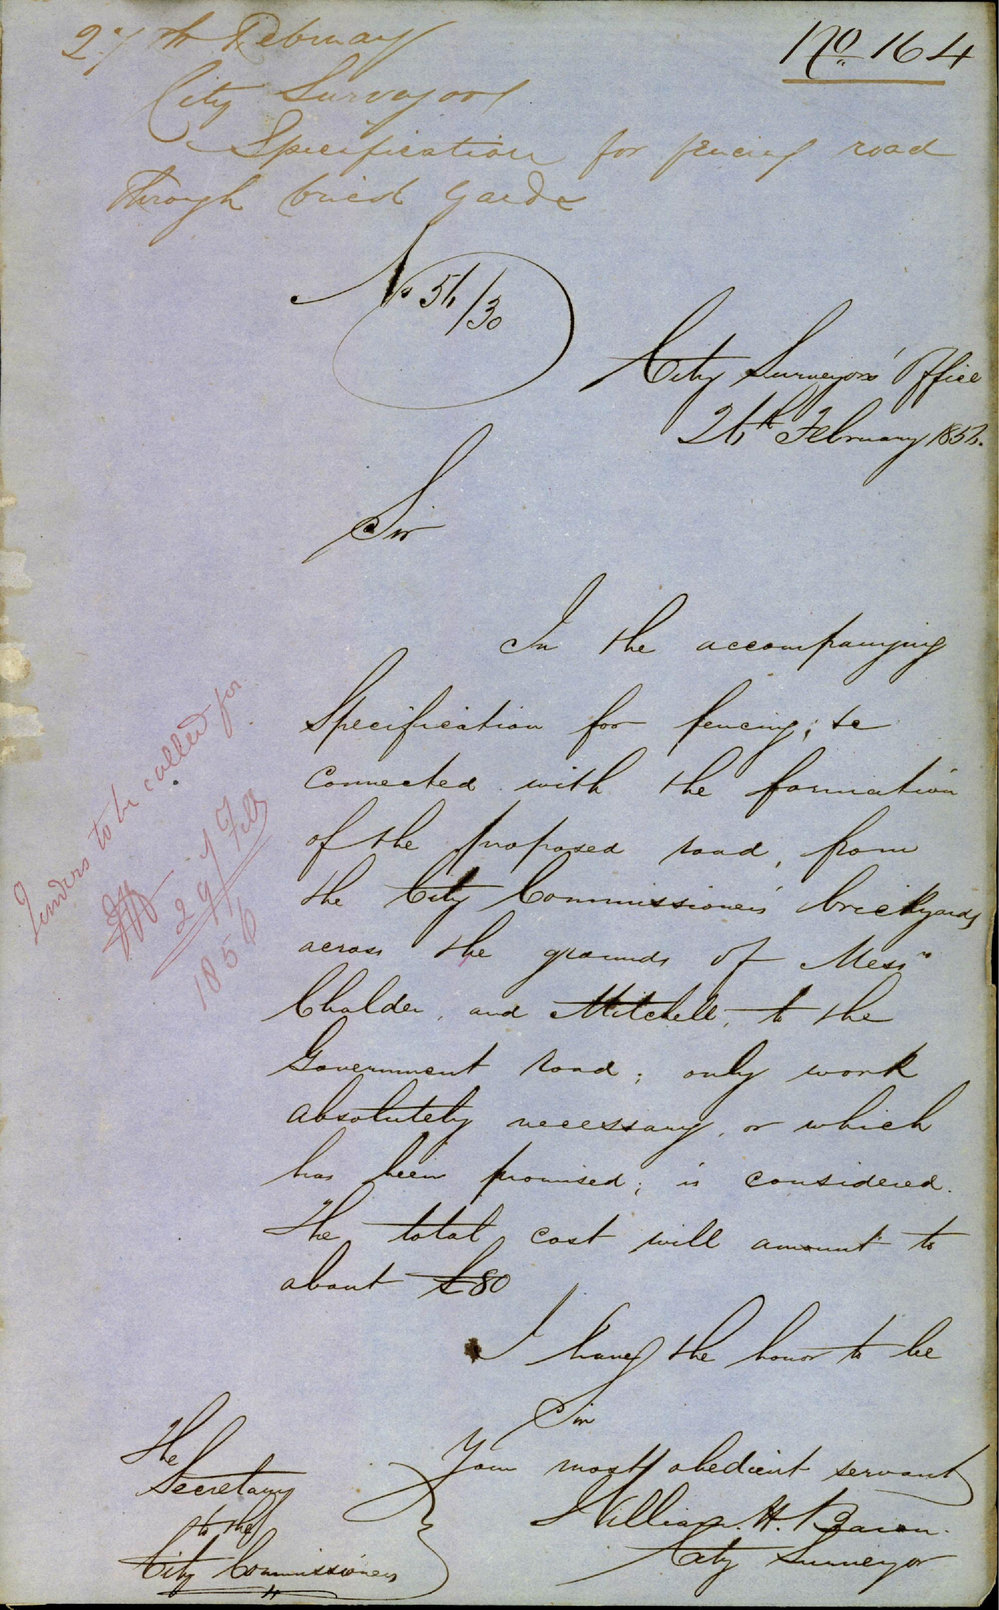 No. 164
27th February
City Surveyor
Specification for fencing road
through brick yards
No 56/30
City Surveyors' Office
26th February 1856.
Sir
In the accompanying
Specification for fencing; &c
connected with the formation
of the proposed road, from
the City Commissioners brickyards
across the grounds of Messrs
Chalder, and Mitchell, to the
Government road; only work
absolutely necessary, or which
has been promised; is considered.
The total cost will amount to
about £80
I have the honor to be
Sir
Your most obedient servant
William. H.
City Surveyor
The
Secretary
to the
City Commissioners
Tenders to be called for
29 Feb
1856